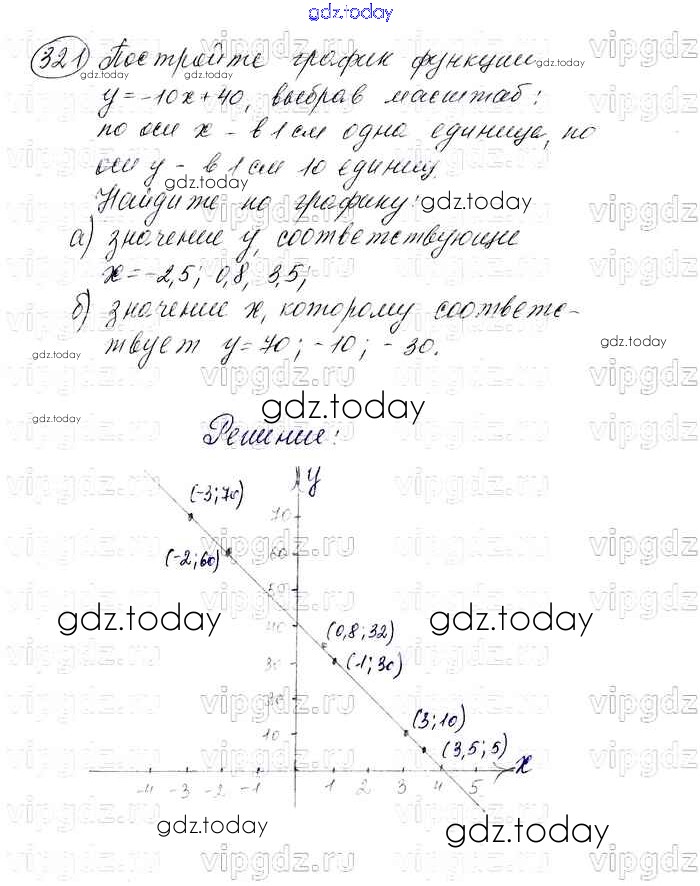 gdz.today
321 Постройте график функции
gdz.today gdz.today
y=-10x+40, выбрав масштаб:
по оси x - в 1 см одна единица, по
оси y - в 1 см 10 единиц.
gdz.today
Найдите по графику: gdz.today
а) значение y, соответствующие
x=-2,5; 0,8, 3,5;
б) значение x, которому соответс-
gdz.today
твует y=70; -10; -30.
gdz.today gdz.today
gdz.today
gdz.today
Решение:
y
(-3;70)
70
(-2;60) 60
50
gdz.today 40 (0,8;32) gdz.today
30 (-1;30)
20
10 (3;10)
(3,5;5)
-4 -3 -2 -1 1 2 3 4 5 x
gdz.today gdz.today
vipgdz.ru